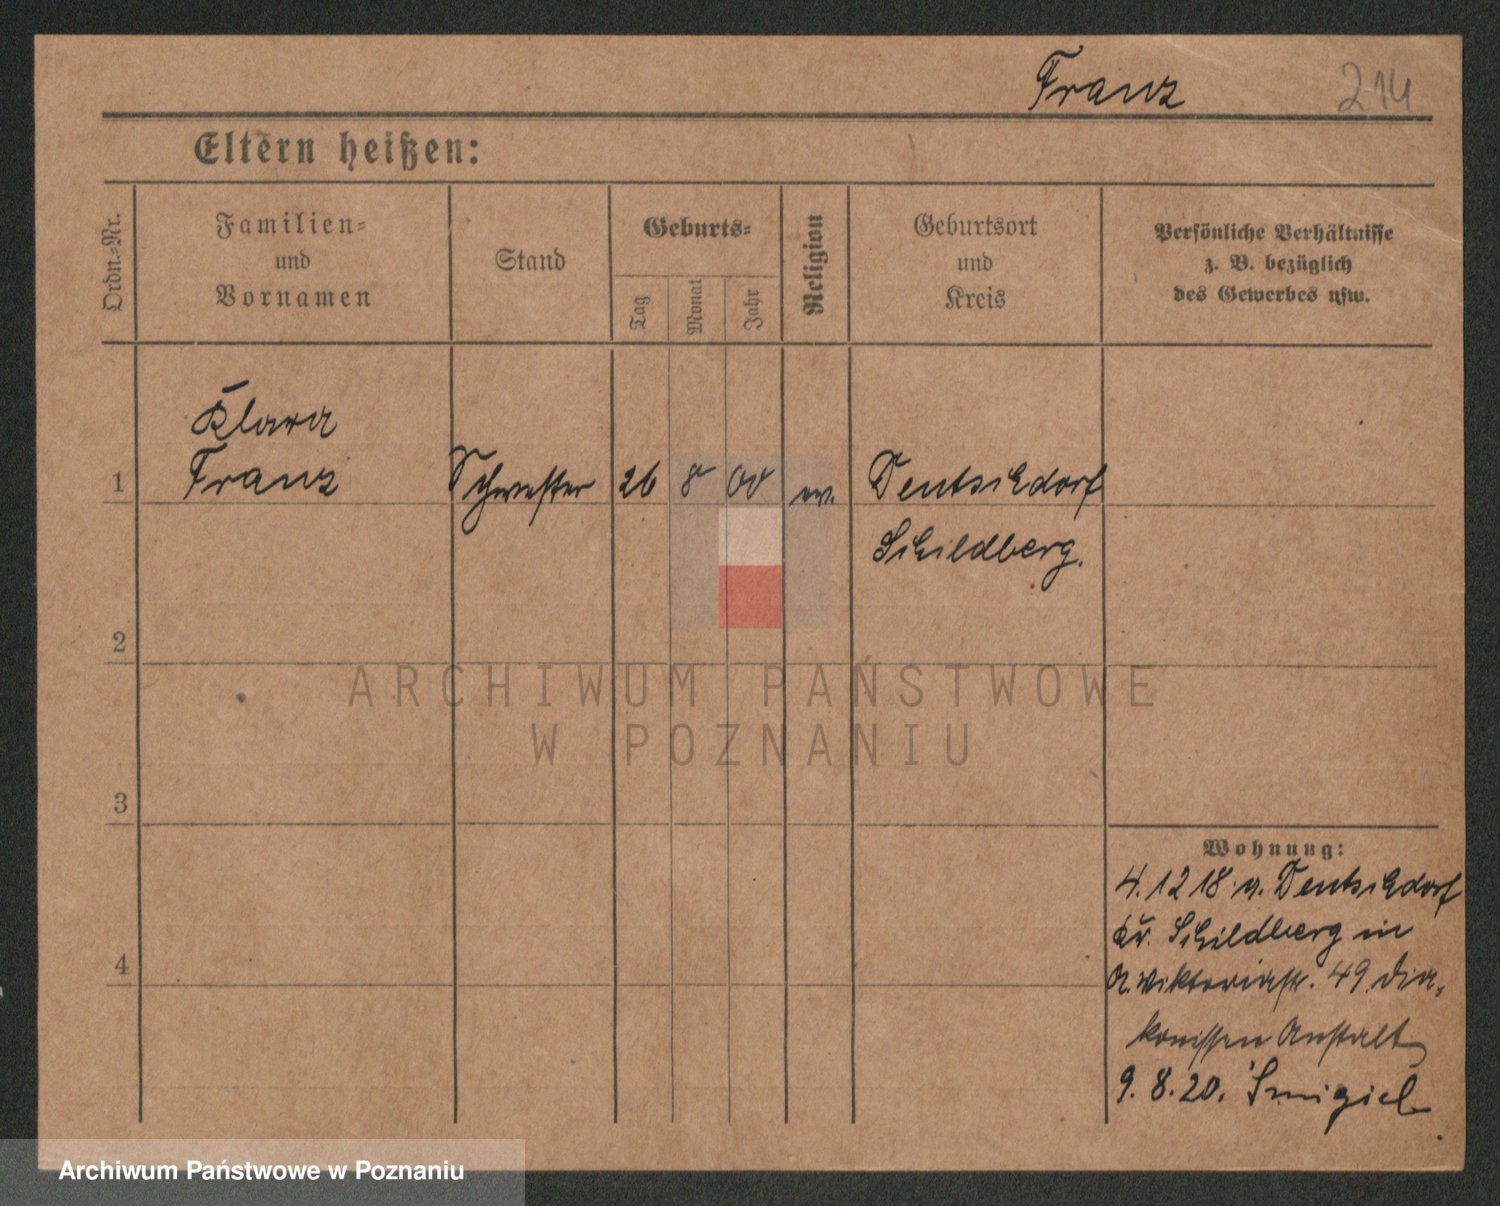 Franz 214
Eltern heißen:
Ordn.-Nr.
Familien-
und
Vornamen
Stand
Geburts-
Tag
Monat
Jahr
Religion
Geburtsort
und
Kreis
Persönliche Verhältnisse
z. B. bezüglich
des Gewerbes usw.
Klara
1 Franz Schwester 26 8 00 ev. Deutschdorf
Schildberg.
2
ARCHIWUM PAŃSTWOWE
W POZNANIU
3
Wohnung:
4.12 18 v. Deutschdorf
Kr. Schildberg in
Viktoriastr. 49 Dia-
4
konissen Anstalt
9. 8. 20. Śmigiel
Archiwum Państwowe w Poznaniu